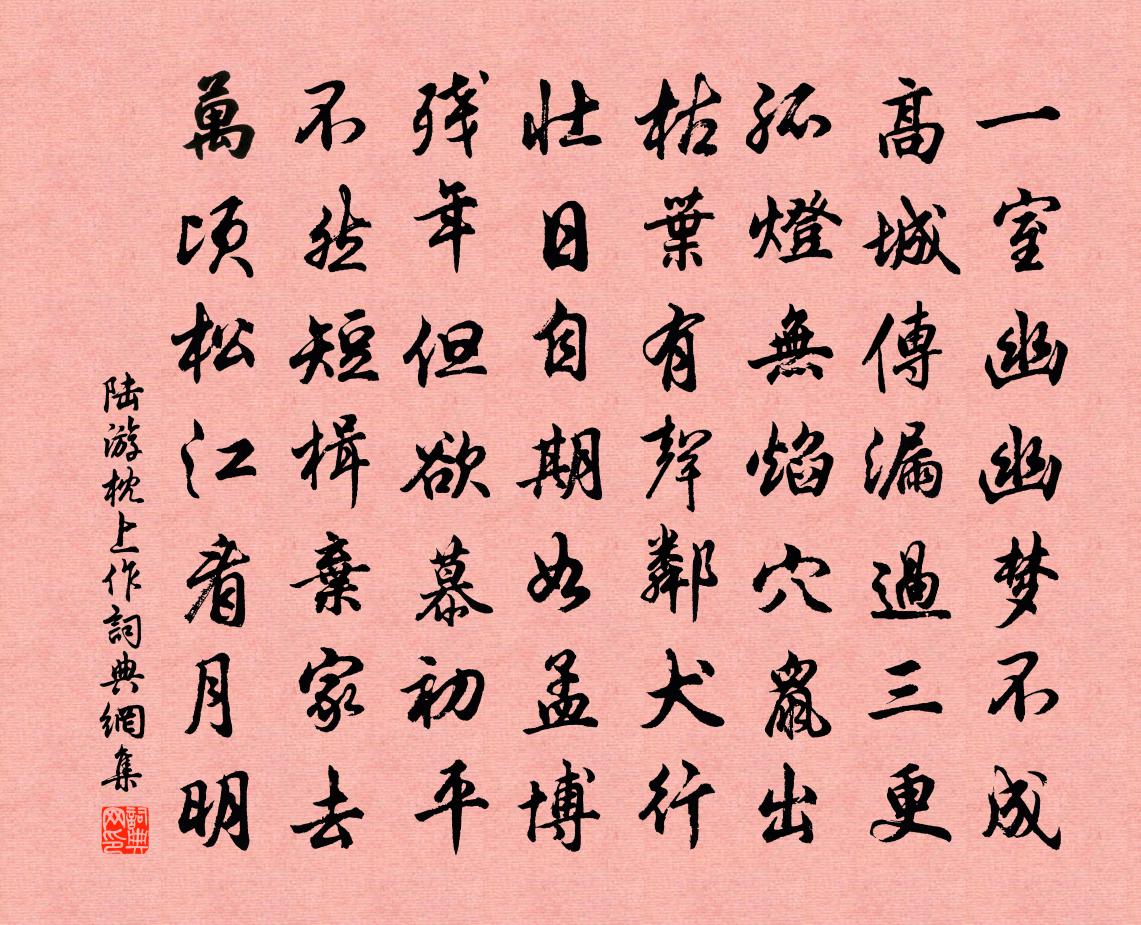 一室幽幽梦不成
高城傳漏過三更
孤燈無焰穴鼠出
枯葉有聲鄰犬行
壯日自期如孟博
残年但欲慕初平
不然短楫棄家去
萬頃松江看月明
陆游枕上作詞典網集
詞典網印